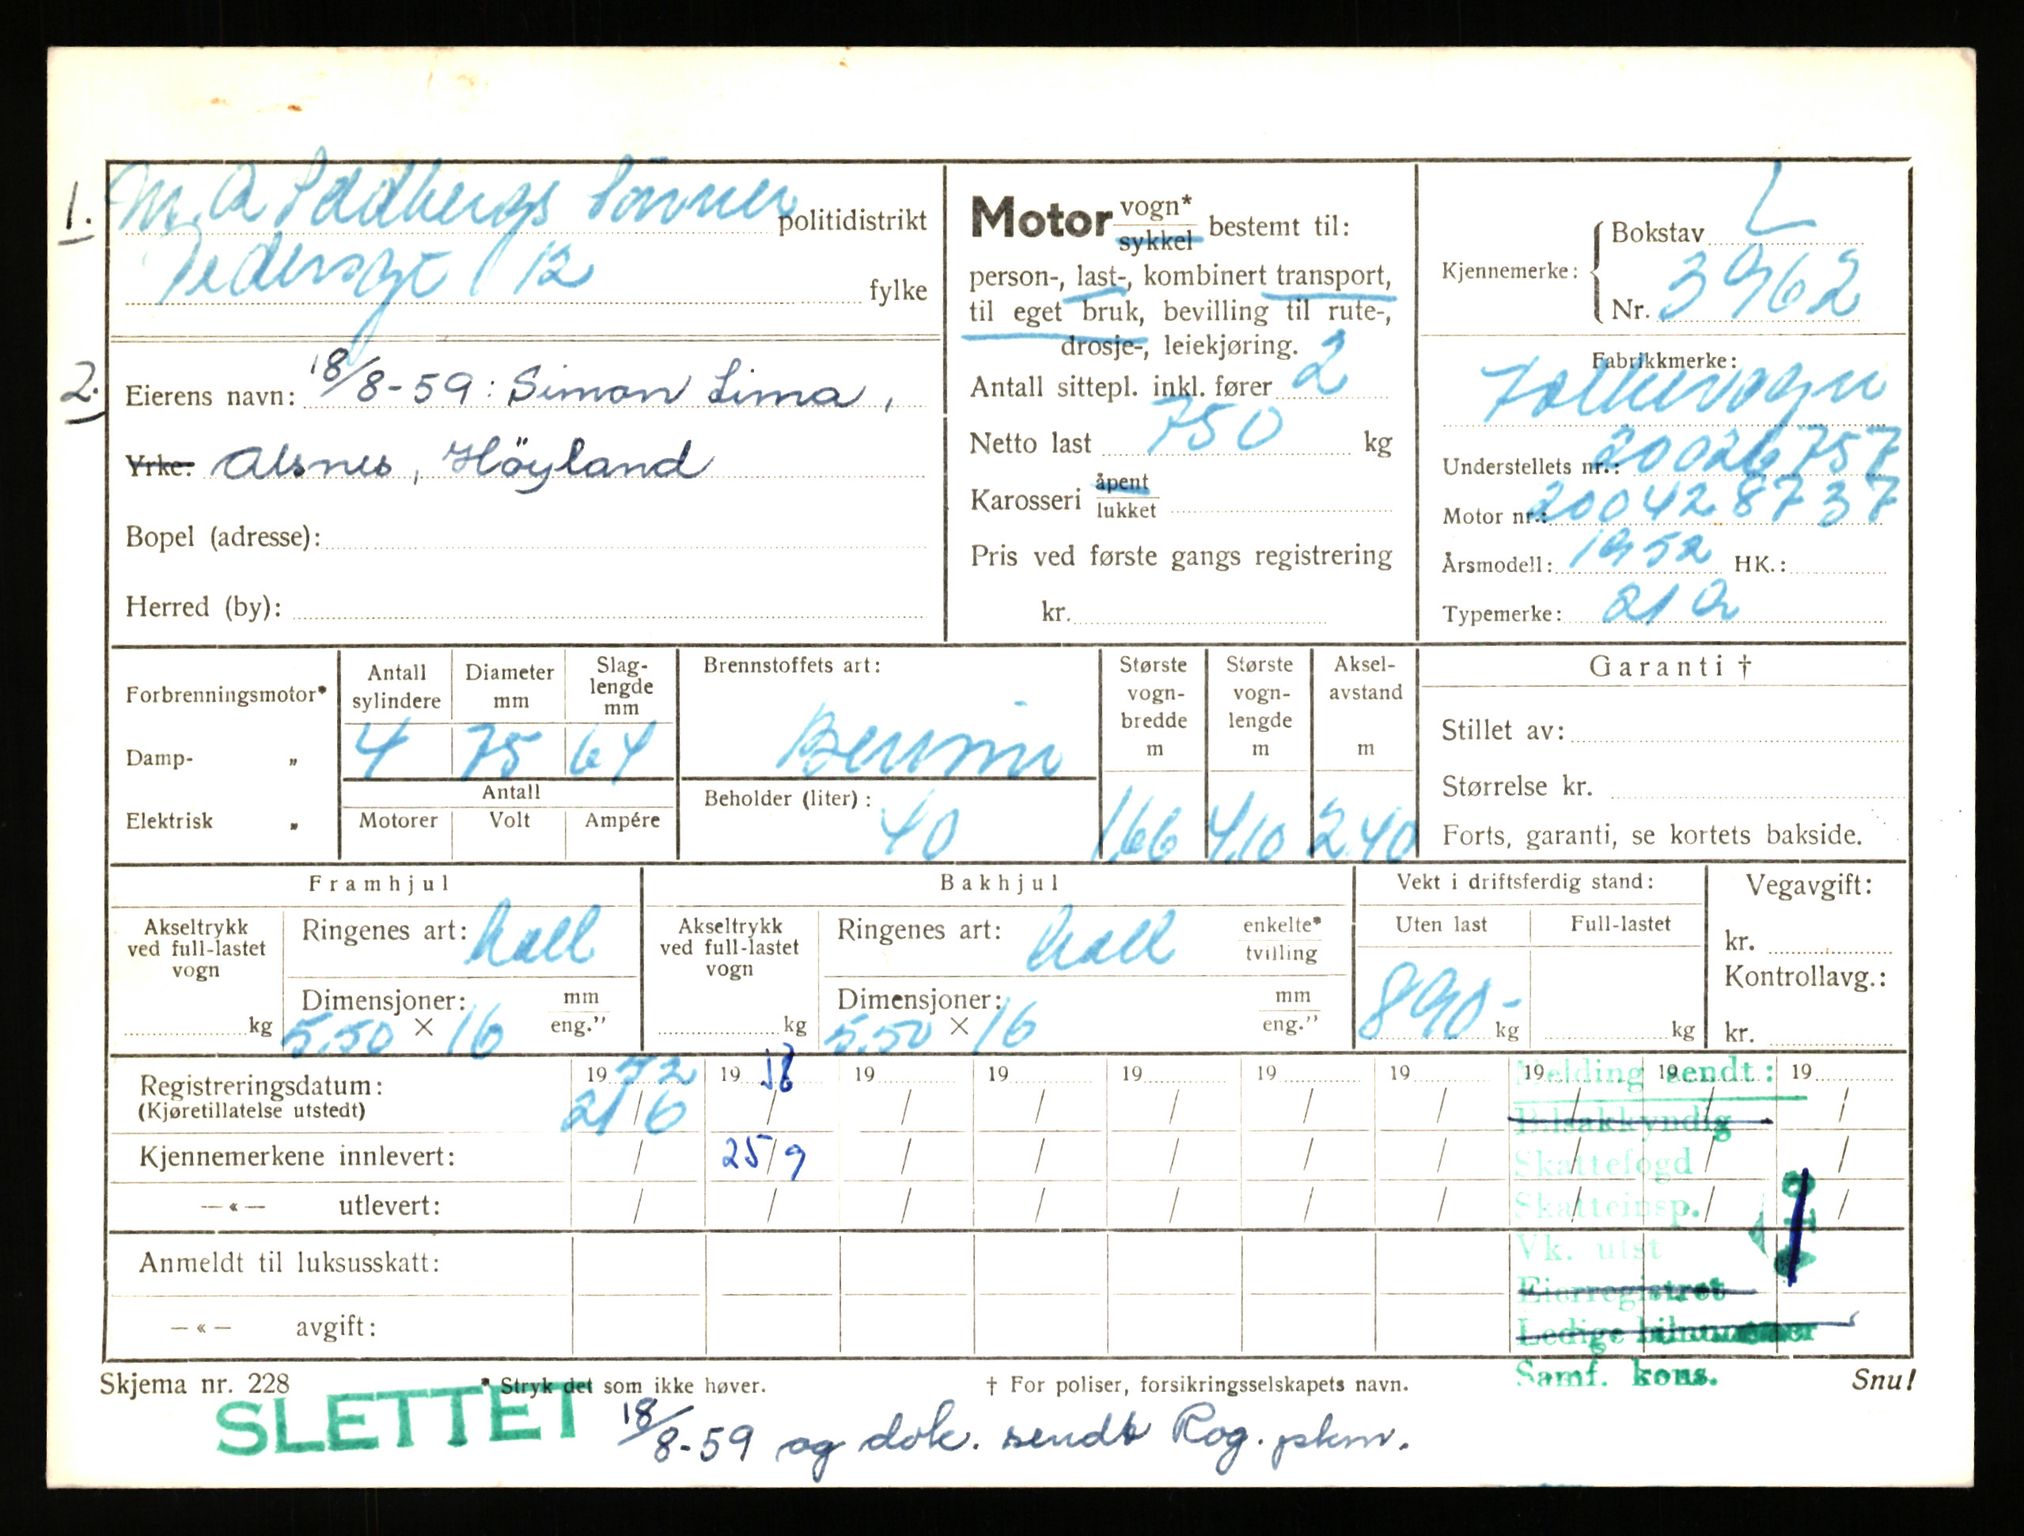 1. M. A. Sødbergs Sönner politidistrikt
Pedersgt 12 fylke
2. Eierens navn: 18/8-59: Simon Lima,
Yrke: Alsnes, Höyland
Bopel (adresse):
Herred (by):
Motor vogn* sykkel bestemt til:
person-, last-, kombinert transport,
til eget bruk, bevilling til rute-,
drosje-, leiekjøring.
Antall sittepl. inkl. fører 2
Netto last 750 kg
Karosseri åpent lukket
Pris ved første gangs registrering
kr.
Kjennemerke: Bokstav L
Nr. 3962
Fabrikkmerke:
Folkevogn
Understellets nr.: 20026757
Motor nr.: 200428737
Årsmodell: 1952 HK.:
Typemerke: 21 a
Forbrenningsmotor*
Damp- „
Elektrisk „
Antall sylindere Diameter mm Slaglengde mm
4 75 64
Antall
Motorer Volt Ampére
Brennstoffets art:
Bensin
Beholder (liter): 40
Største vogn-bredde m 1,66
Største vogn-lengde m 4,10
Aksel-avstand m 2.40
Garanti †
Stillet av:
Størrelse kr.
Forts, garanti, se kortets bakside.
Framhjul
Akseltrykk ved full-lastet vogn kg
Ringenes art: hall
Dimensjoner: 5.50 × 16 mm eng."
Bakhjul
Akseltrykk ved full-lastet vogn kg
Ringenes art: hall enkelte* tvilling
Dimensjoner: 5.50 × 16 mm eng."
Vekt i driftsferdig stand:
Uten last Full-lastet
890- kg kg
Vegavgift:
kr.
Kontrollavg.:
kr.
Registreringsdatum: 19 52 19 58 19 19 19 19 19 19 19 19
(Kjøretillatelse utstedt) 21/6 / / / / / / / / /
Kjennemerkene innlevert: / 25/9 / / / / / / / /
—«— utlevert: / / / / / / / / / /
Anmeldt til luksusskatt:
—«— avgift:
Melding sendt:
Bilsakkyndig
Skattefogd
Skatteinsp.
Vk. utst
Eierregistret
Ledige bilnummer
Samf. kons.
Skjema nr. 228 * Stryk det som ikke høver. † For poliser, forsikringsselskapets navn. Snu!
SLETTET 18/8-59 og dok. sendt Rog. pkm.